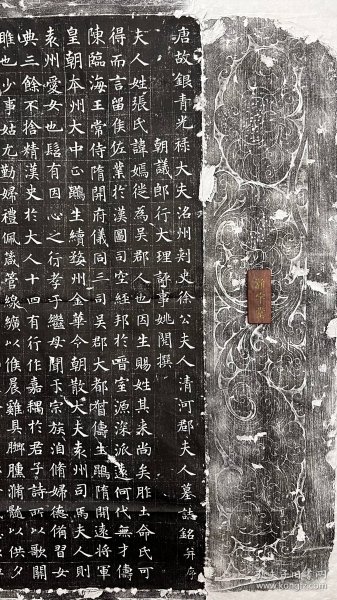 唐故銀青光祿大夫洺州刺史徐公夫人清河郡夫人墓誌銘并序
朝議郎行大理評事姚閱撰
夫人姓張氏諱嫣從為吳郡人也因生賜姓其來尚矣胙土命氏可
得而言留侯佐業於漢圖司空經邦於晉室源深派遠何代無才儔
陳臨海王常侍隋開府儀同三司吳郡大都督儔生鵰隋開遠將軍
皇朝本州大中正鵰生續婺州金華令朝散大夫袁州司馬夫人則
袁州愛女也髫有因心之行孝于繼母聞于宗族洎脩婦德備習女
典三餘不捨精漢史於大人十四有行作嘉耦於君子詩所以歌關
雎也少事姑尤勤婦禮佩箴管線纊以俟晨雞具膷臐滫髓以供夕